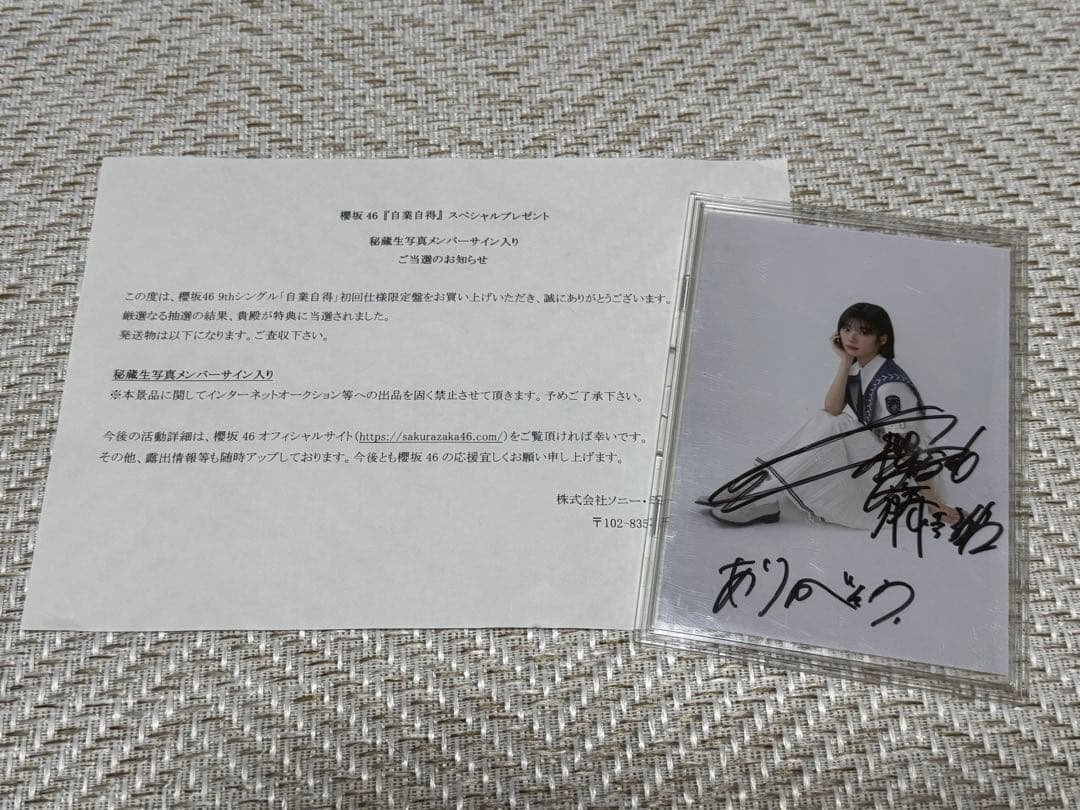 櫻坂46『自業自得』スペシャルプレゼント
秘蔵生写真メンバーサイン入り
ご当選のお知らせ
この度は、櫻坂46 9thシングル「自業自得」初回仕様限定盤をお買い上げいただき、誠にありがとうございます。
厳選なる抽選の結果、貴殿が特典に当選されました。
発送物は以下になります。ご査収下さい。
秘蔵生写真メンバーサイン入り
※本景品に関してインターネットオークション等への出品を固く禁止させて頂きます。予めご了承下さい。
今後の活動詳細は、櫻坂46オフィシャルサイト(https://sakurazaka46.com/)をご覧頂ければ幸いです。
その他、露出情報等も随時アップしております。今後とも櫻坂46の応援宜しくお願い申し上げます。
株式会社ソニー・ミ
〒102-835
ありがとう